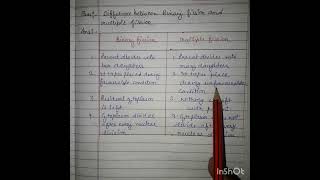 Ques:- Difference between Binary fission and
multiple fission.
Ans:-
Binary fission
multiple fission
1. Parent divides into
two daughters
1. Parent divides into
many daughters
2. It takes place during
favourable
condition
2. It takes place
during unfavourable
condition
3. Residual cytoplasm
is left.
3. Nothing is left
with parent
4. Cytoplasm divides
after every nuclear
division
4. Cytoplasm does not
divide after every
nuclear division
Made with
InShOt